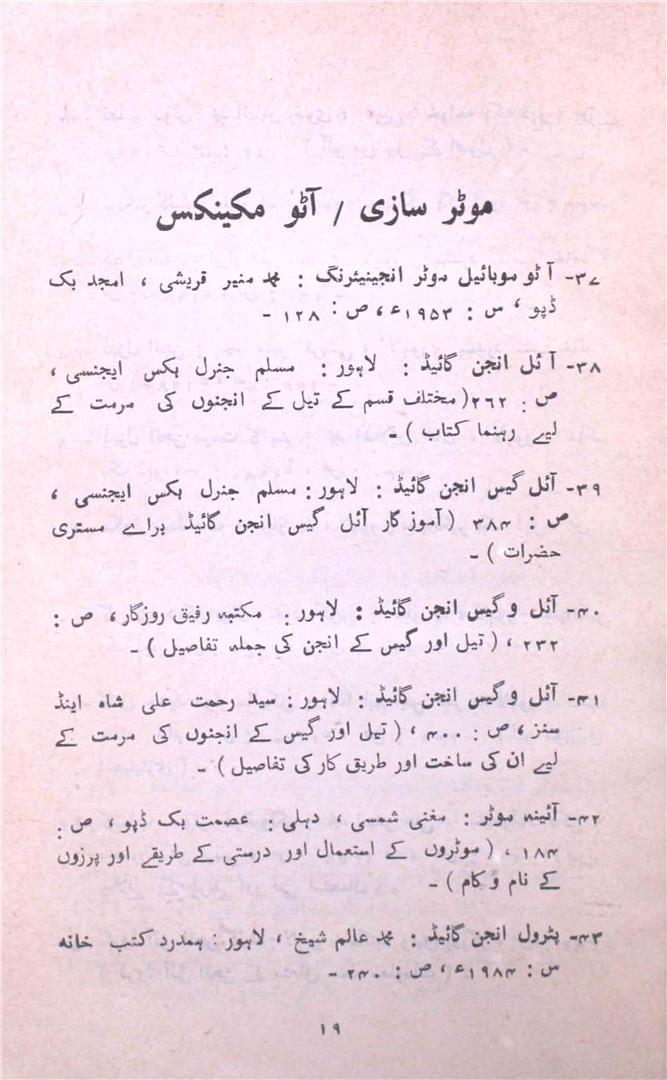 موٹر سازی / آٹو مکینکس
۳۷- آٹو موبائیل موٹر انجینیئرنگ : محمد منیر قریشی ، امجد بک
ڈپو ، س : ۱۹۵۳ء ، ص : ۱۲۸ -
۳۸- آئل انجن گائیڈ : لاہور : مسلم جنرل بکس ایجنسی ،
ص : ۲۶۲ ( مختلف قسم کے تیل کے انجنوں کی مرمت کے
لیے رہنما کتاب ) -
۳۹- آئل گیس انجن گائیڈ : لاہور : مسلم جنرل بکس ایجنسی ،
ص : ۳۸۴ ( آموز کار آئل گیس انجن گائیڈ براے مستری
حضرات ) -
۴۰- آئل و گیس انجن گائیڈ : لاہور : مکتبہ رفیق روزگار ، ص :
۲۳۲ ، ( تیل اور گیس کے انجن کی جملہ تفاصیل ) -
۴۱- آئل و گیس انجن گائیڈ : لاہور : سید رحمت علی شاہ اینڈ
سنز ، ص : ۴۰۰ ، ( تیل اور گیس کے انجنوں کی مرمت کے
لیے ان کی ساخت اور طریق کار کی تفاصیل ) -
۴۲- آئینہ موٹر : مغنی شمسی ، دہلی : عصمت بک ڈپو ، ص :
۱۸۴ ، ( موٹروں کے استعمال اور درستی کے طریقے اور پرزوں
کے نام و کام ) -
۴۳- پٹرول انجن گائیڈ : محمد عالم شیخ ، لاہور : ہمدرد کتب خانہ
س : ۱۹۸۴ء ، ص : ۲۴۰ -
۱۹